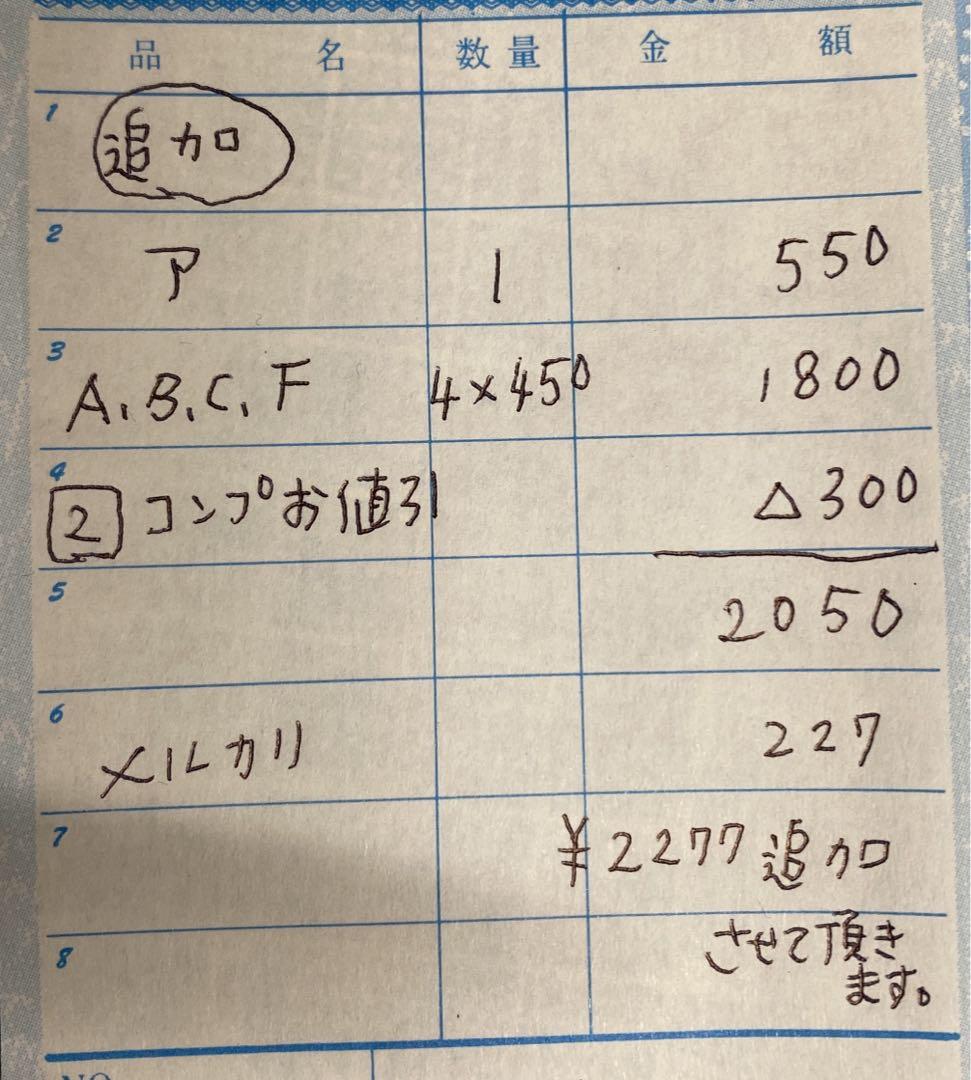 品名 数量 金額
1 追加
2 ア 1 550
3 A、B、C、F 4×450 1800
4 2 コンプお値引 △300
5 2050
6 メルカリ 227
7 ¥2277追加
8 させて頂き
ます。
NO